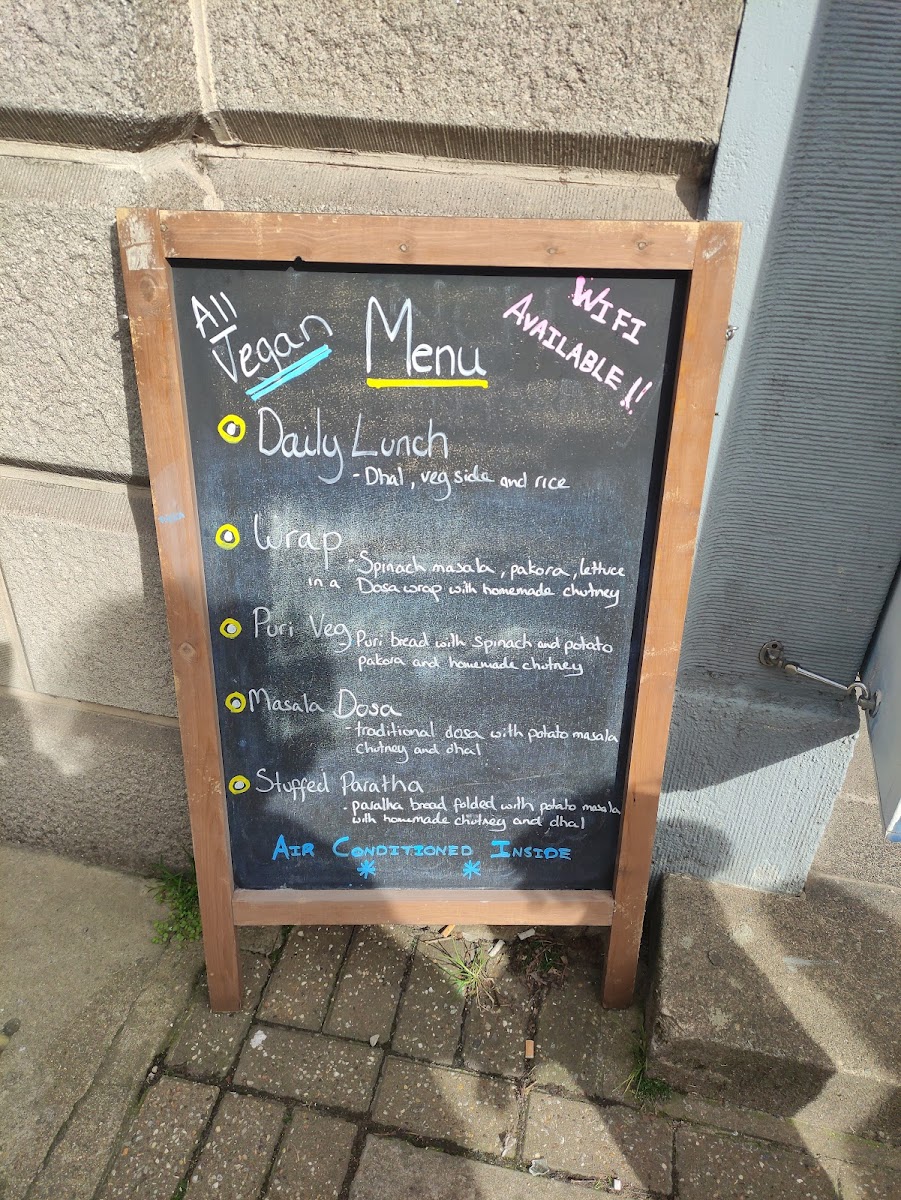 All
Vegan
Menu
WIFI
AVAILABLE!!
Daily Lunch
- Dhal, veg side and rice
Wrap
- Spinach masala, pakora, lettuce
in a Dosa wrap with homemade chutney
Puri Veg
Puri bread with Spinach and potato
pakora and homemade chutney
Masala Dosa
- traditional dosa with potato masala
chutney and dhal
Stuffed Paratha
- paratha bread folded with potato masala
with homemade chutney and dhal
AIR CONDITIONED INSIDE